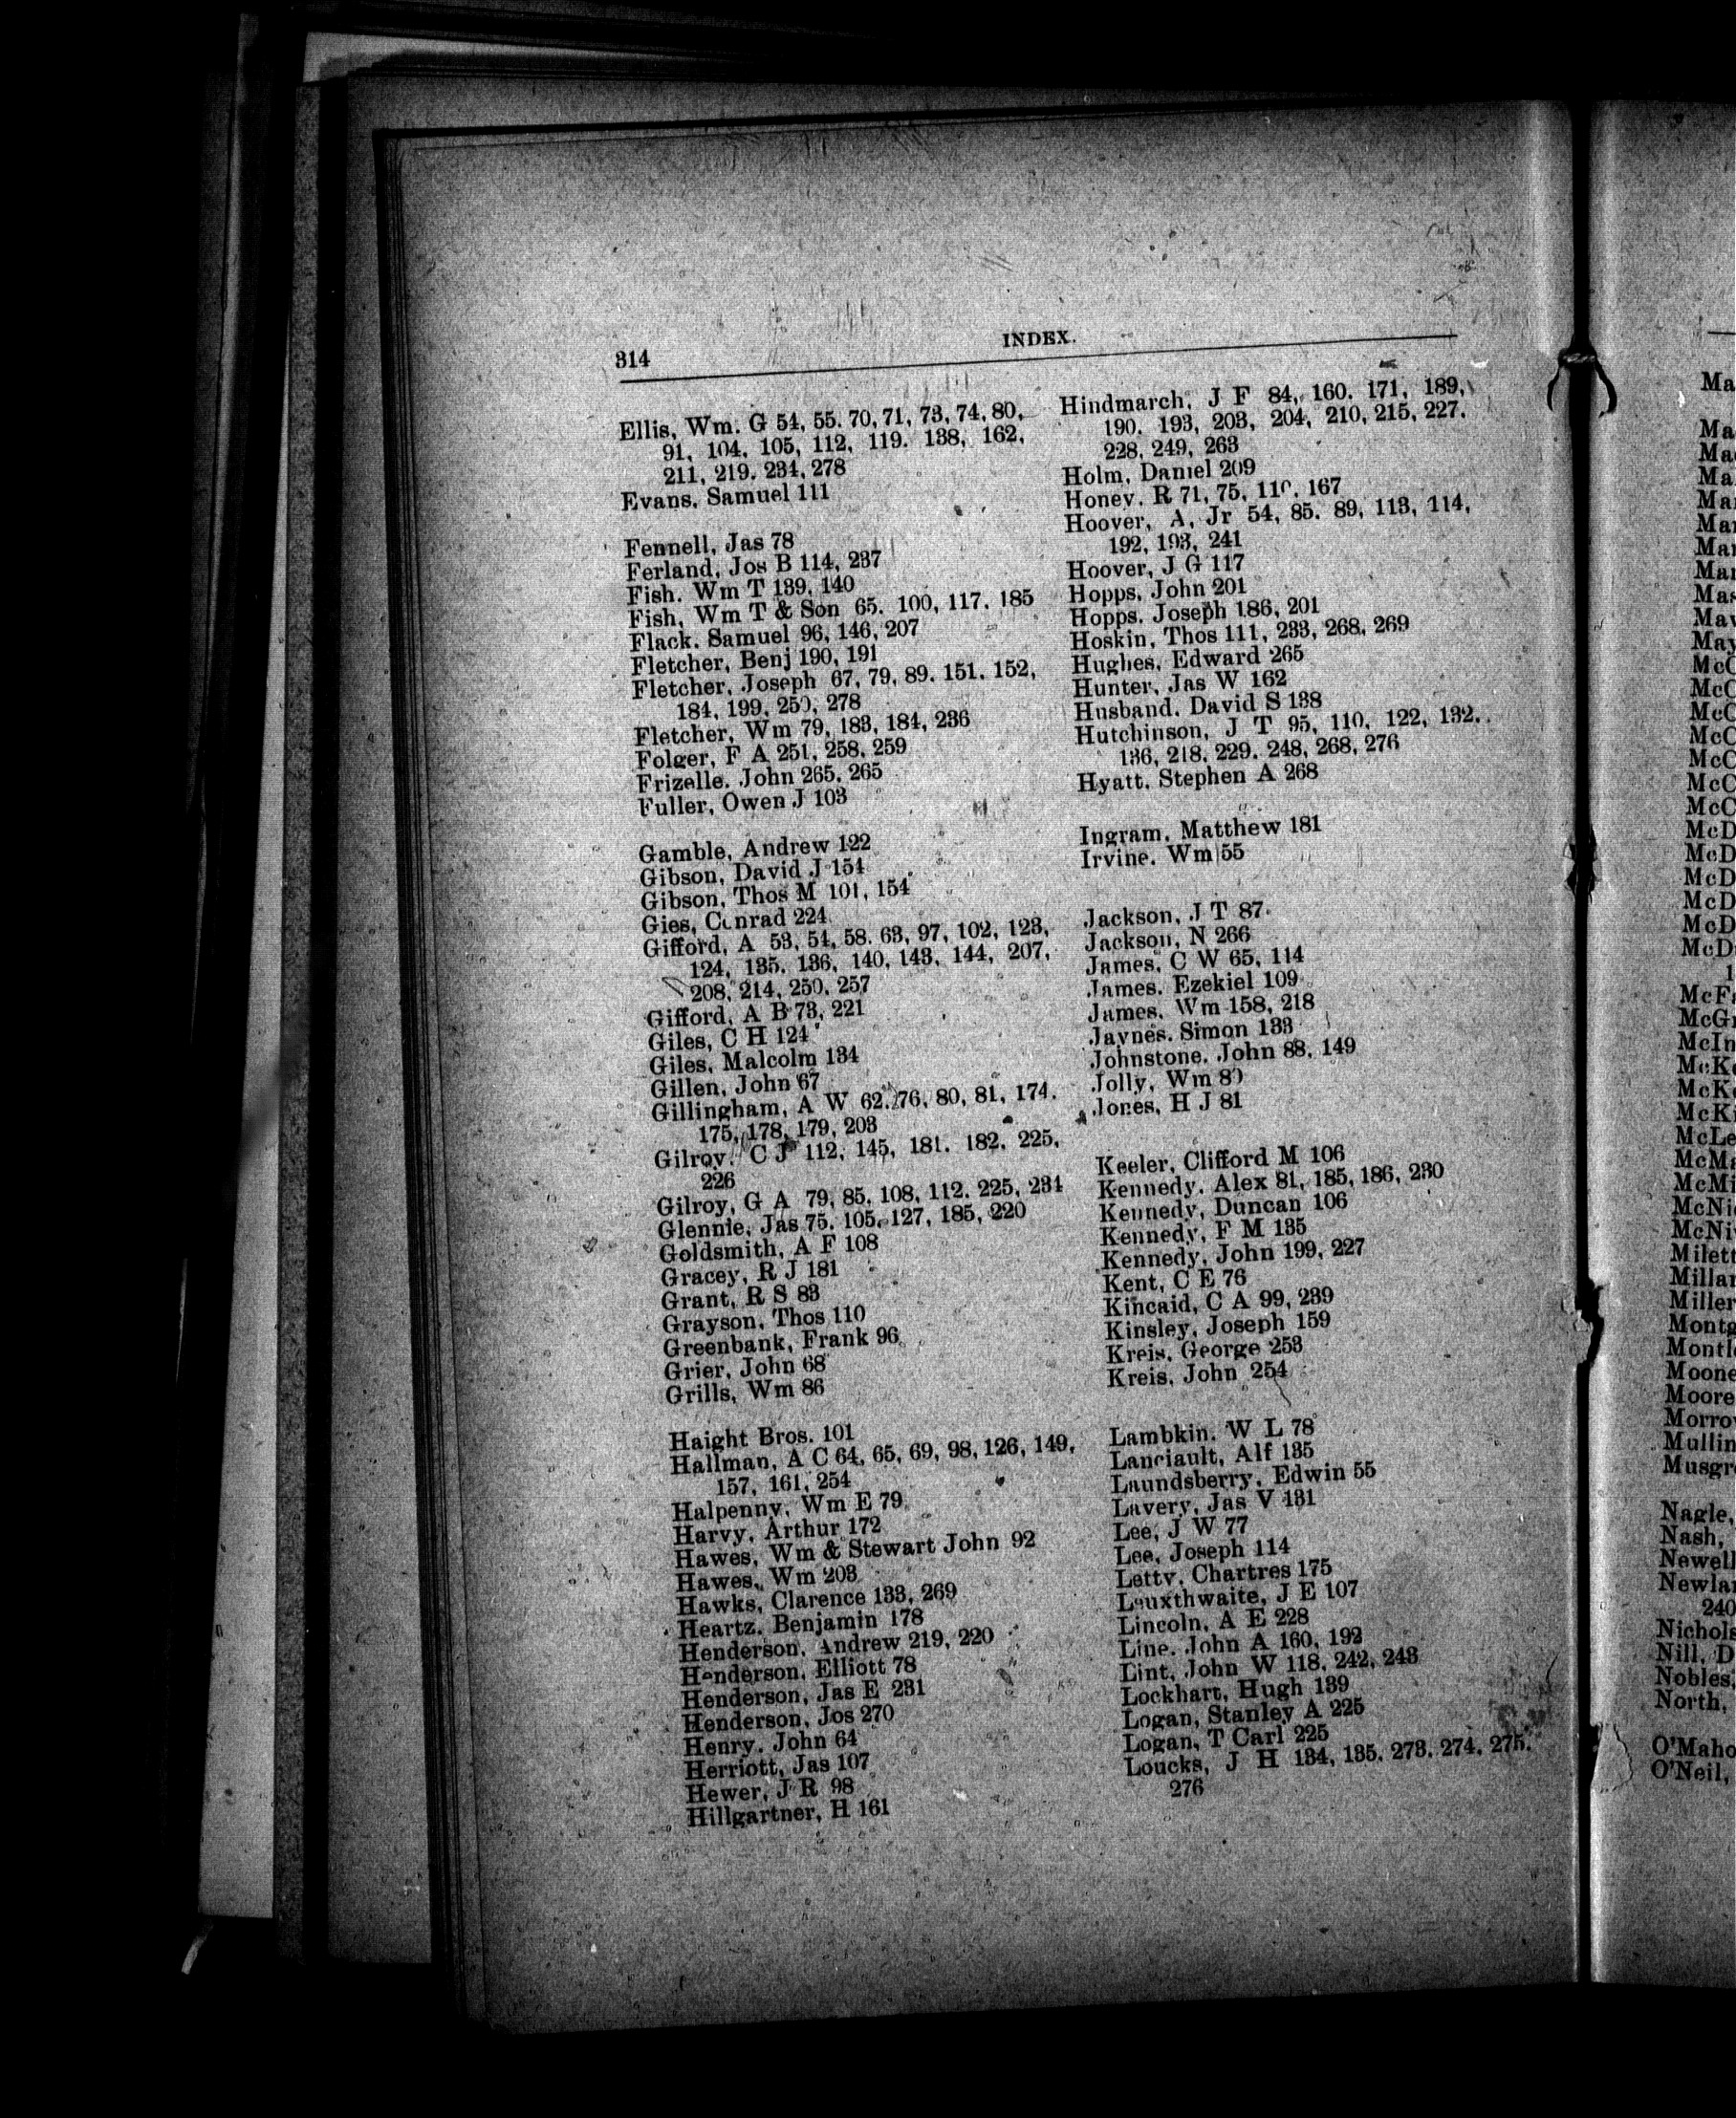 314
INDEX.
Ellis, Wm. G 54, 55. 70, 71, 73, 74, 80,
91, 104, 105, 112, 119. 138, 162,
211, 219, 234, 278
Evans, Samuel 111
Fennell, Jas 78
Ferland, Jos B 114, 237
Fish. Wm T 139, 140
Fish, Wm T & Son 65. 100, 117. 185
Flack. Samuel 96, 146, 207
Fletcher, Benj 190, 191
Fletcher, Joseph 67, 79, 89. 151. 152,
184, 199, 250, 278
Fletcher, Wm 79, 183, 184, 236
Folger, F A 251, 258, 259
Frizelle. John 265, 265
Fuller, Owen J 103
Gamble, Andrew 122
Gibson, David J 154
Gibson, Thos M 101, 154
Gies, Conrad 224
Gifford, A 53, 54, 58. 63, 97, 102, 123,
124, 135. 136, 140, 143, 144, 207,
208, 214, 250, 257
Gifford, A B 73, 221
Giles, C H 124
Giles, Malcolm 134
Gillen, John 67
Gillingham, A W 62. 76, 80, 81, 174.
175, 178, 179, 203
Gilroy, C J 112, 145, 181. 182, 225,
226
Gilroy, G A 79, 85. 108, 112. 225, 234
Glennie, Jas 75. 105, 127, 185, 220
Goldsmith, A F 108
Gracey, R J 181
Grant, R S 83
Grayson, Thos 110
Greenbank, Frank 96
Grier, John 68
Grills, Wm 86
Haight Bros. 101
Hallman, A C 64, 65, 69, 98, 126, 149,
157, 161, 254
Halpenny, Wm E 79
Harvy, Arthur 172
Hawes, Wm & Stewart John 92
Hawes, Wm 203
Hawks, Clarence 133, 269
Heartz. Benjamin 178
Henderson, Andrew 219, 220
Henderson, Elliott 78
Henderson, Jas E 231
Henderson, Jos 270
Henry. John 64
Herriott, Jas 107
Hewer, J R 98
Hillgartner, H 161
Hindmarch, J F 84, 160. 171, 189,
190. 193, 203, 204, 210, 215, 227.
228, 249, 263
Holm, Daniel 209
Honey. R 71, 75, 167
Hoover, A, Jr 54, 85. 89, 113, 114,
192, 193, 241
Hoover, J G 117
Hopps, John 201
Hopps. Joseph 186, 201
Hoskin, Thos 111, 233, 268, 269
Hughes, Edward 265
Hunter, Jas W 162
Husband. David S 138
Hutchinson, J T 95, 110, 122, 132.
136, 218, 229. 248, 268, 276
Hyatt, Stephen A 268
Ingram. Matthew 181
Irvine. Wm 55
Jackson, J T 87
Jackson, N 266
James, C W 65, 114
James. Ezekiel 109
James. Wm 158, 218
Jaynes. Simon 133
Johnstone, John 88, 149
Jolly, Wm
Jones, H J 81
Keeler, Clifford M 106
Kennedy. Alex 81, 185, 186, 230
Kennedy, Duncan 106
Kennedy, F M 135
Kennedy, John 199, 227
Kent, C E 76
Kincaid, C A 99, 239
Kinsley, Joseph 159
Kreis, George 253
Kreis, John 254
Lambkin. W L 78
Lanciault, Alf 135
Laundsberry, Edwin 55
Lavery, Jas V 131
Lee, J W 77
Lee, Joseph 114
Letty, Chartres 175
Leuxthwaite, J E 107
Lincoln, A E 228
Line. John A 160, 192
Lint, John W 118, 242, 243
Lockhart, Hugh 139
Logan, Stanley A 225
Logan, T Carl 225
Loucks, J H 134, 135. 273. 274, 275.
276
Ma
Ma
Ma
Ma
Ma
McC
McC
McC
McC
McC
McC
McC
McD
McD
McD
McD
McD
McD
1
Milett
Millar
Miller
Montg
Moone
Moore
Morro
Mullin
Musgr
Nagle,
Nash,
Newell
Newla
240
Nichols
Nill, D
Nobles,
North,
O'Maho
O'Neil,